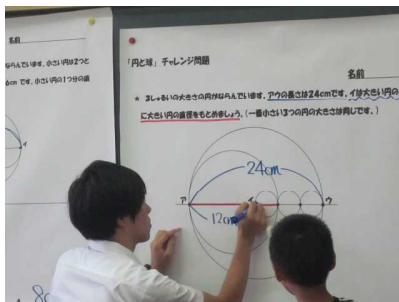 名前
ならんでいます。小さい円は2つと
6cmです。小さい円の1つ分の直
イ
8c
「円と球」チャレンジ問題
名前
★ 3しゅるいの大きさの円がならんでいます。アウの長さは24cmです。イは大きい円の
に大きい円の直径をもとめましょう。(一番小さい3つの円の大きさは同じです。)
24cm
ア
イ
ウ
12cm